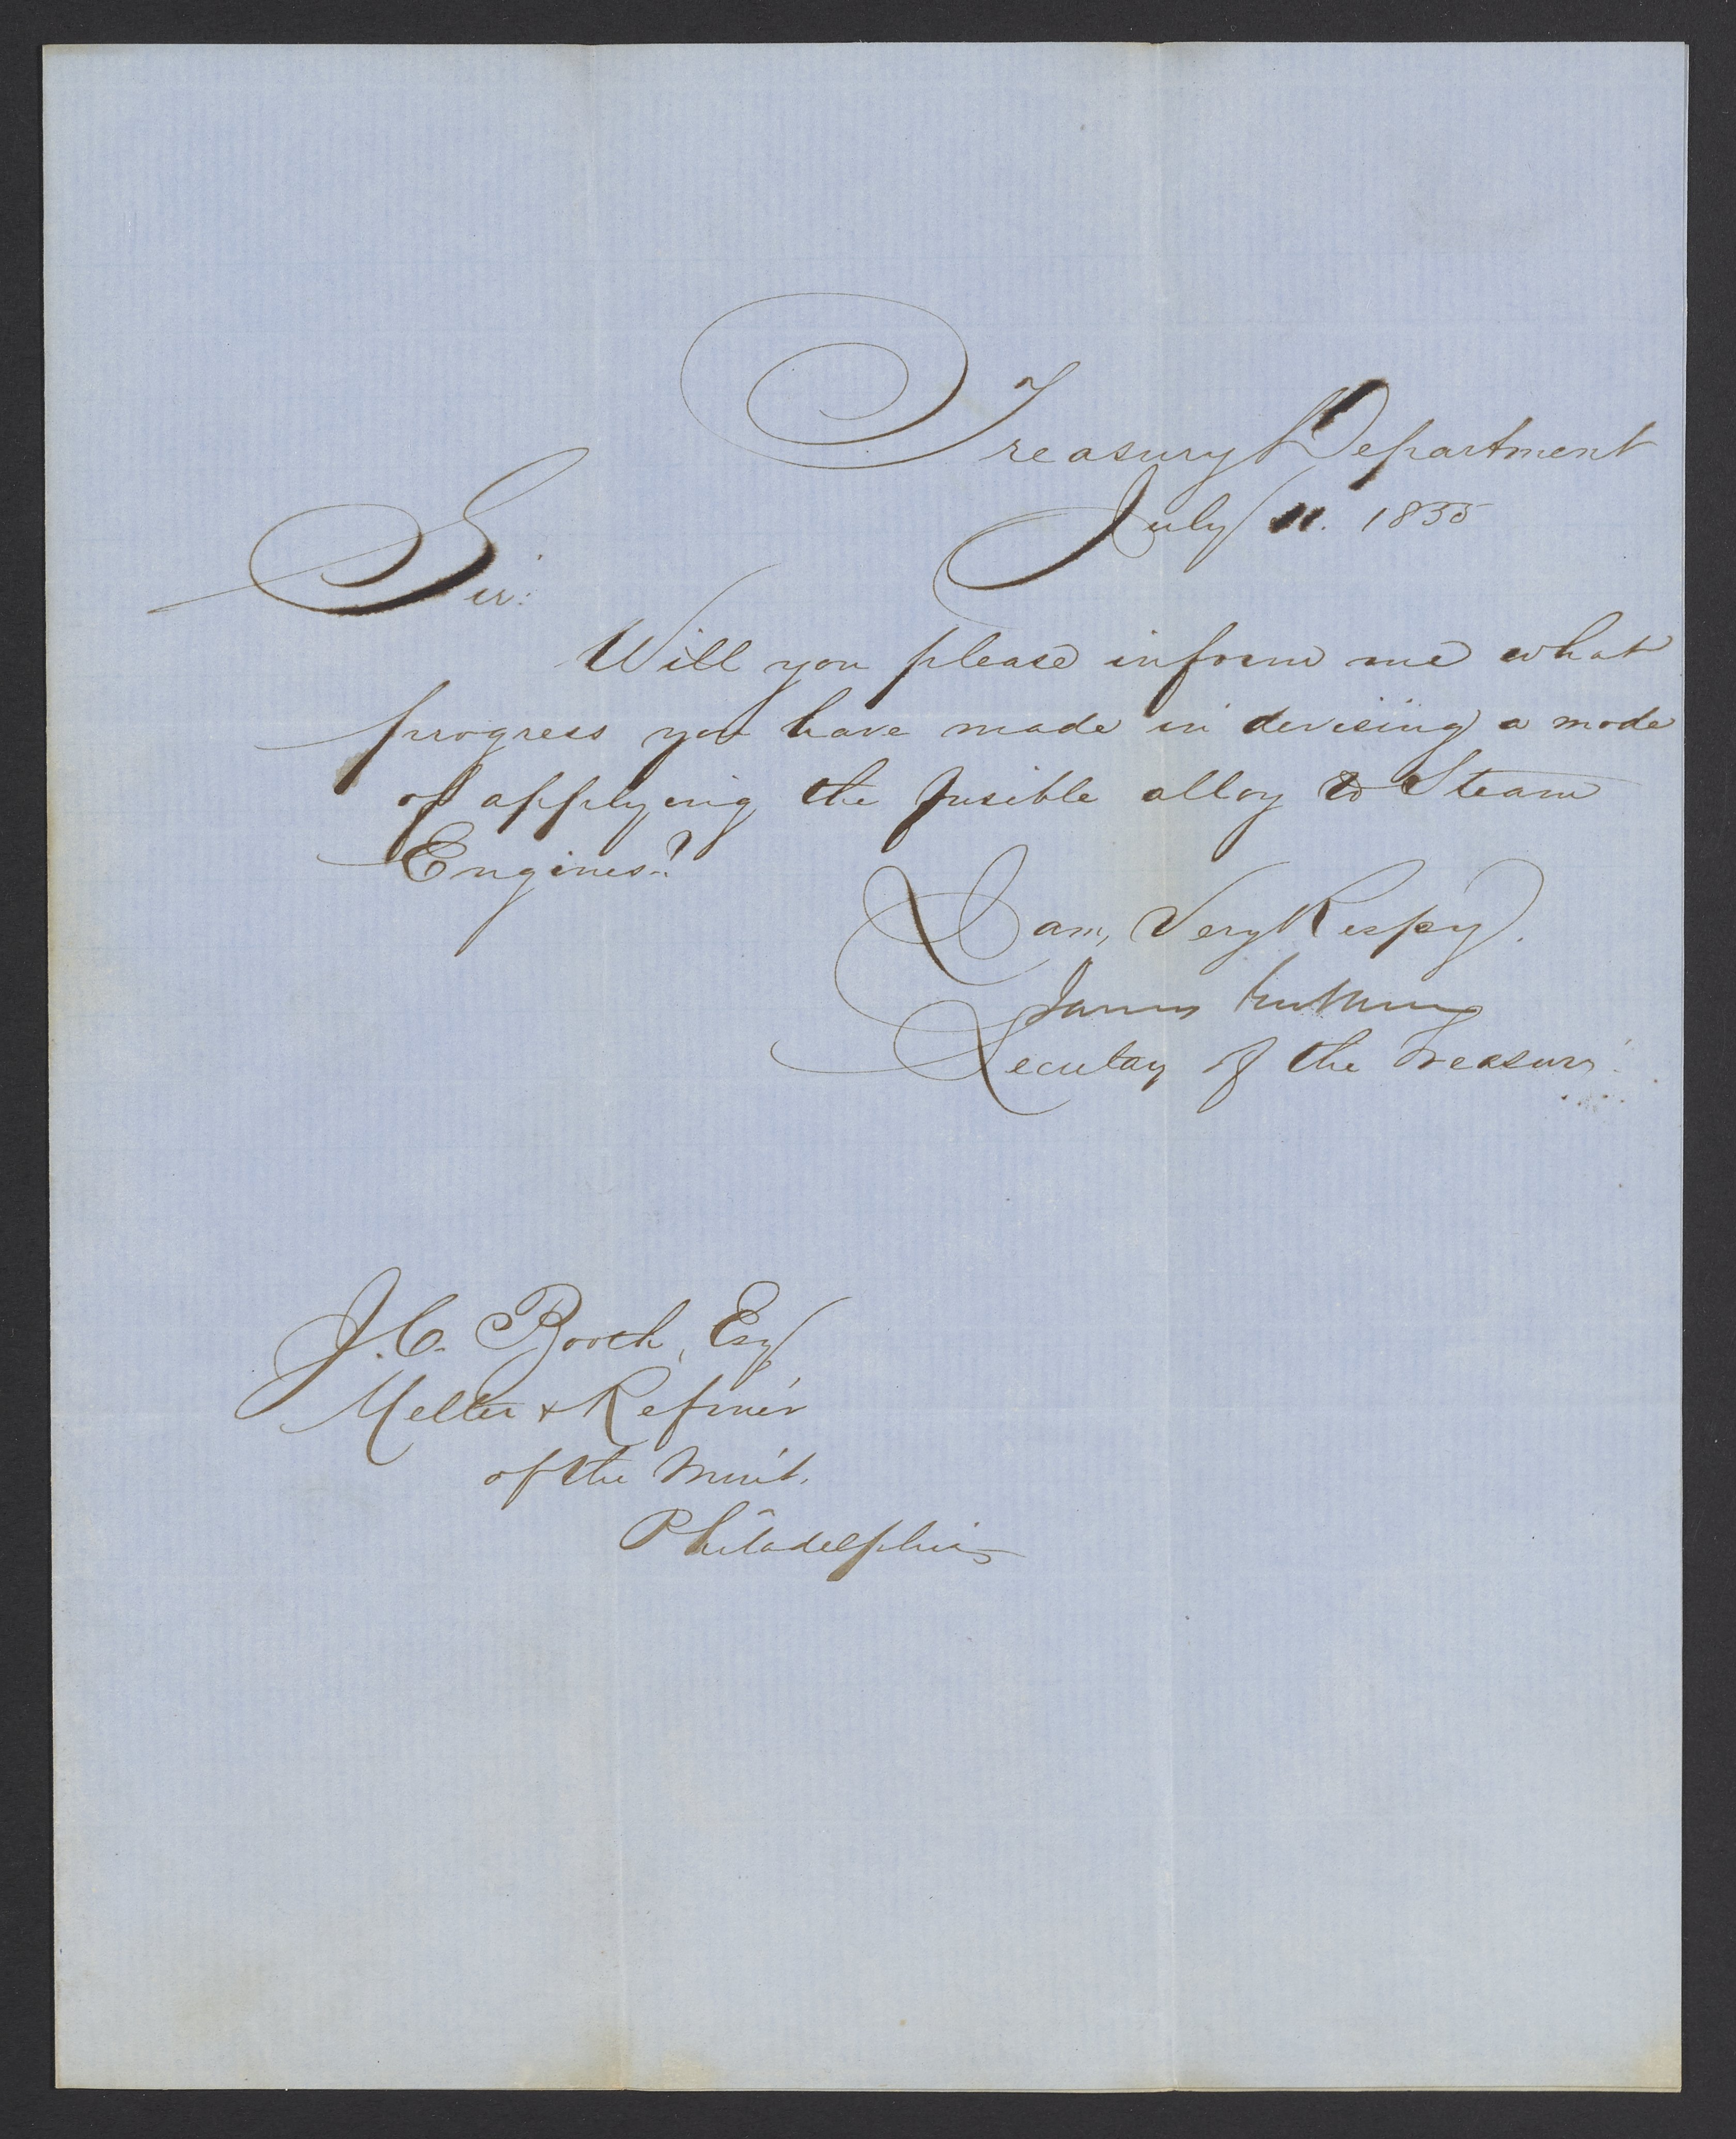 Treasury Department
July 11. 1855
Sir:
Will you please inform me what
progress you have made in devising a mode
of applying the fusible alloy to Steam
Engines?
I am, Very Respy.
James Guthrie
Secretary of the Treasury.
J. C. Booth, Esq
Melter & Refiner
of the Mint.
Philadelphia